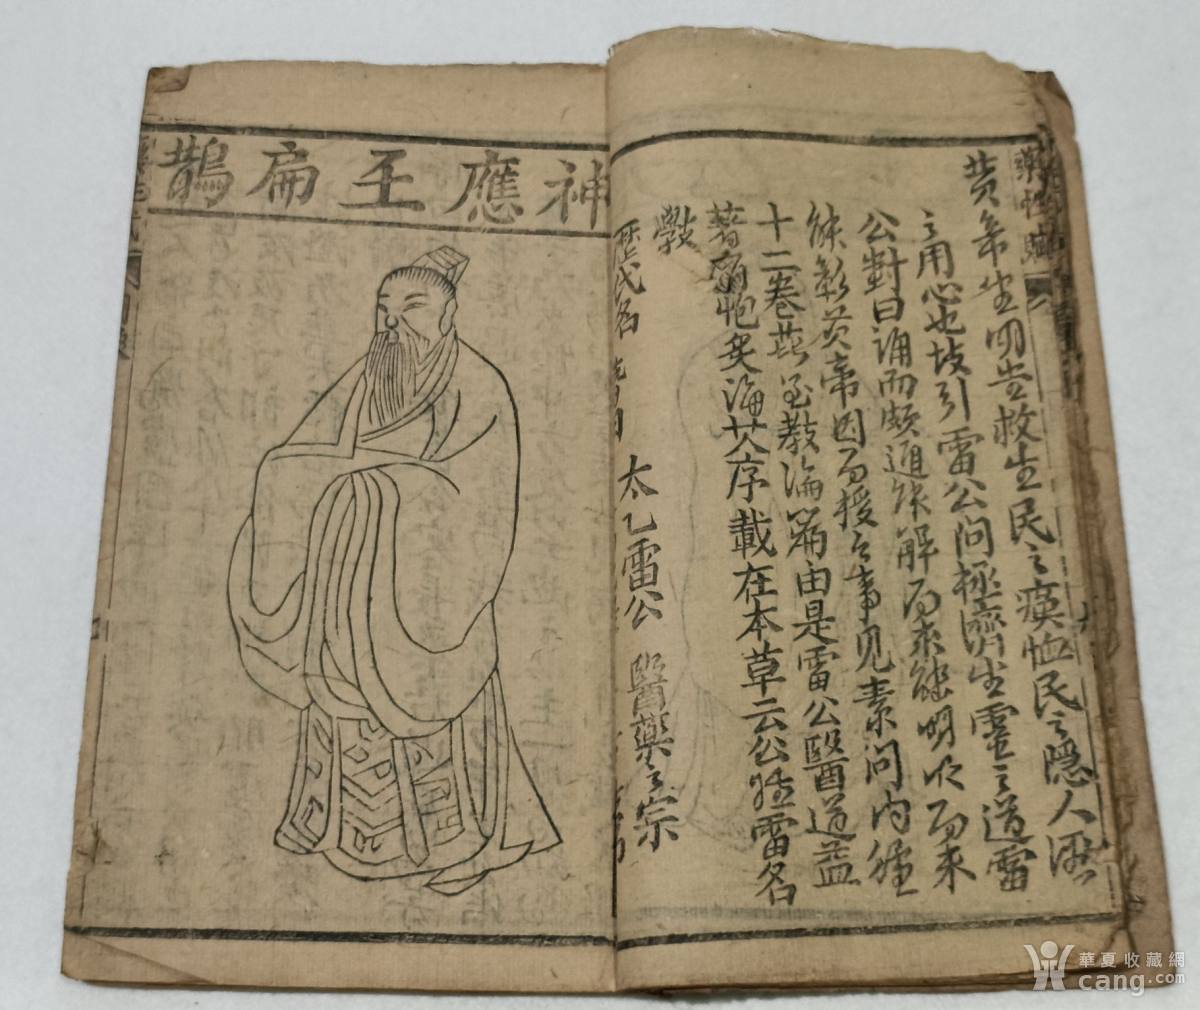 藥性賦
黄帝坐明堂救生民之瘼恤民之隱人
之用心也故引雷公問極濟生靈之道雷
公對曰誦而頗通能解而未能明 而未
能彰黄帝因而授之事見素問內經
十二卷 至教論篇由是雷公醫道益
著 炮炙論其序載在本草云公姓雷名
斆
太乙雷公 醫藥之宗
歷代名
神應王扁鵲
華夏收藏網
cang.com